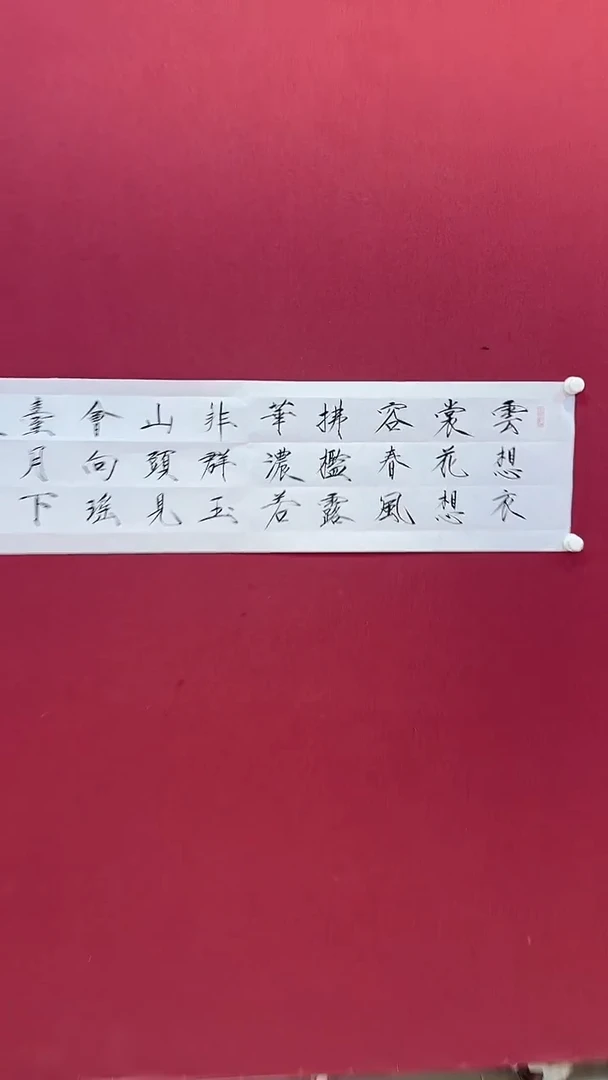 雲想衣
裳花想
容春風
拂檻露
華濃若
非群玉
山頭見
會向瑶
臺月下